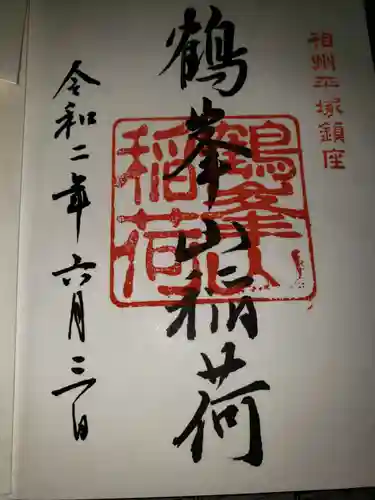 相州平塚鎮座
鶴峯山稲荷
鶴峯山
稲荷
令和二年六月三日